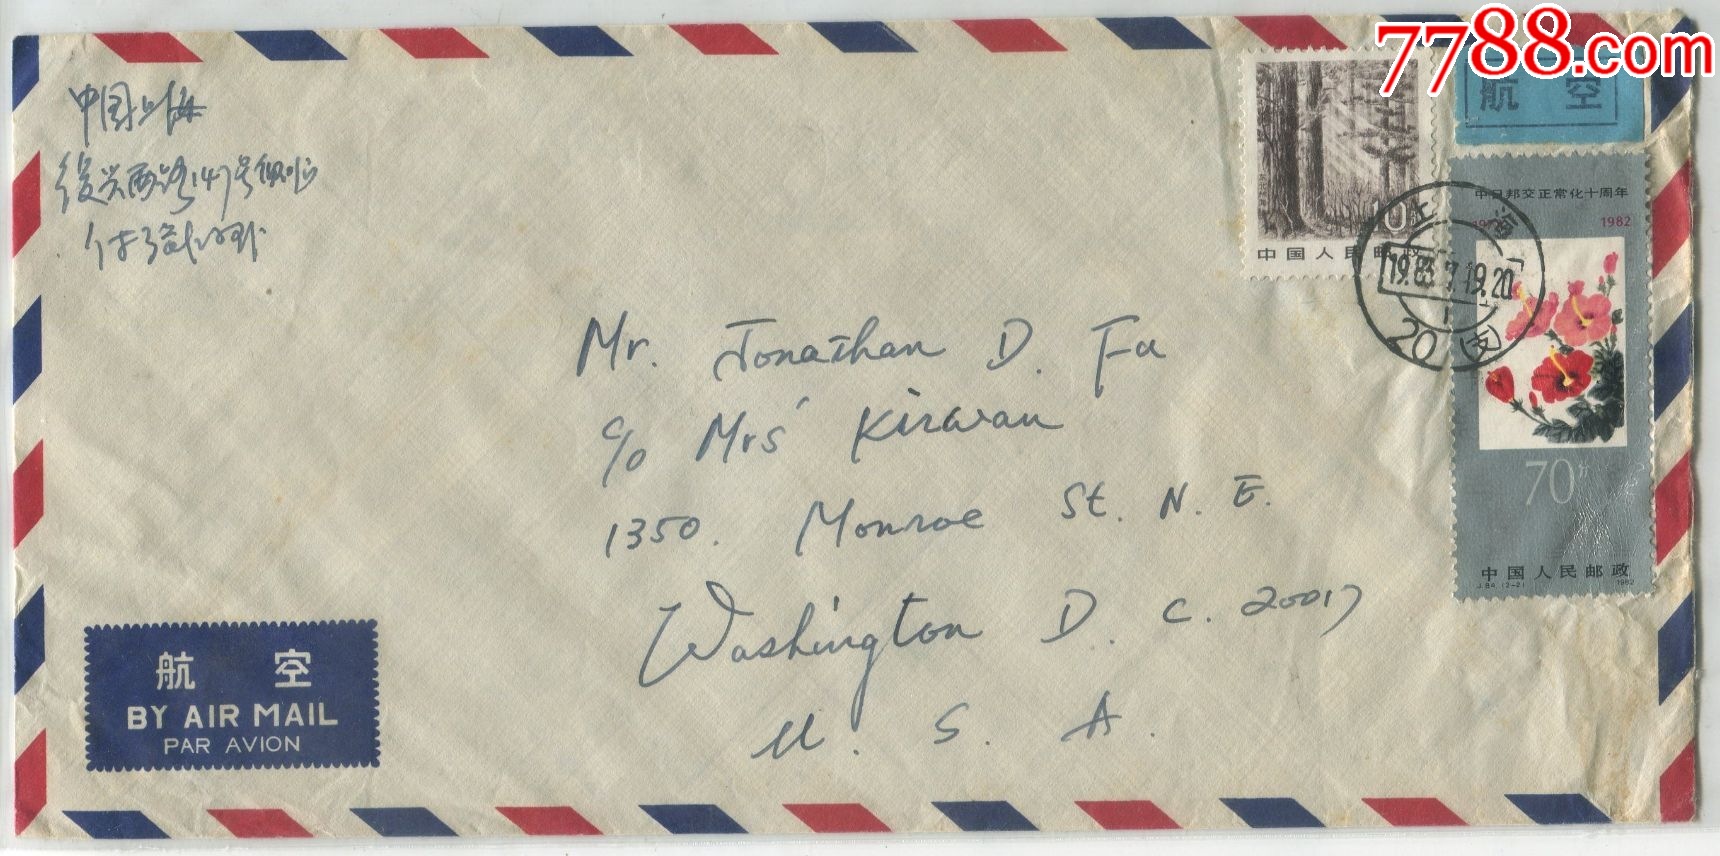 7788.com
航 空
中国上海
復兴西路147号
中国人民邮政
10
中日邦交正常化十周年
1982
70分
中国人民邮政
J.84.(2-2) 1982
上海
20 支
Mr. Jonathan D. Fu
c/o Mrs Kirwan
1350. Monroe St. N. E.
Washington D. C. 20017
U. S. A.
航 空
BY AIR MAIL
PAR AVION